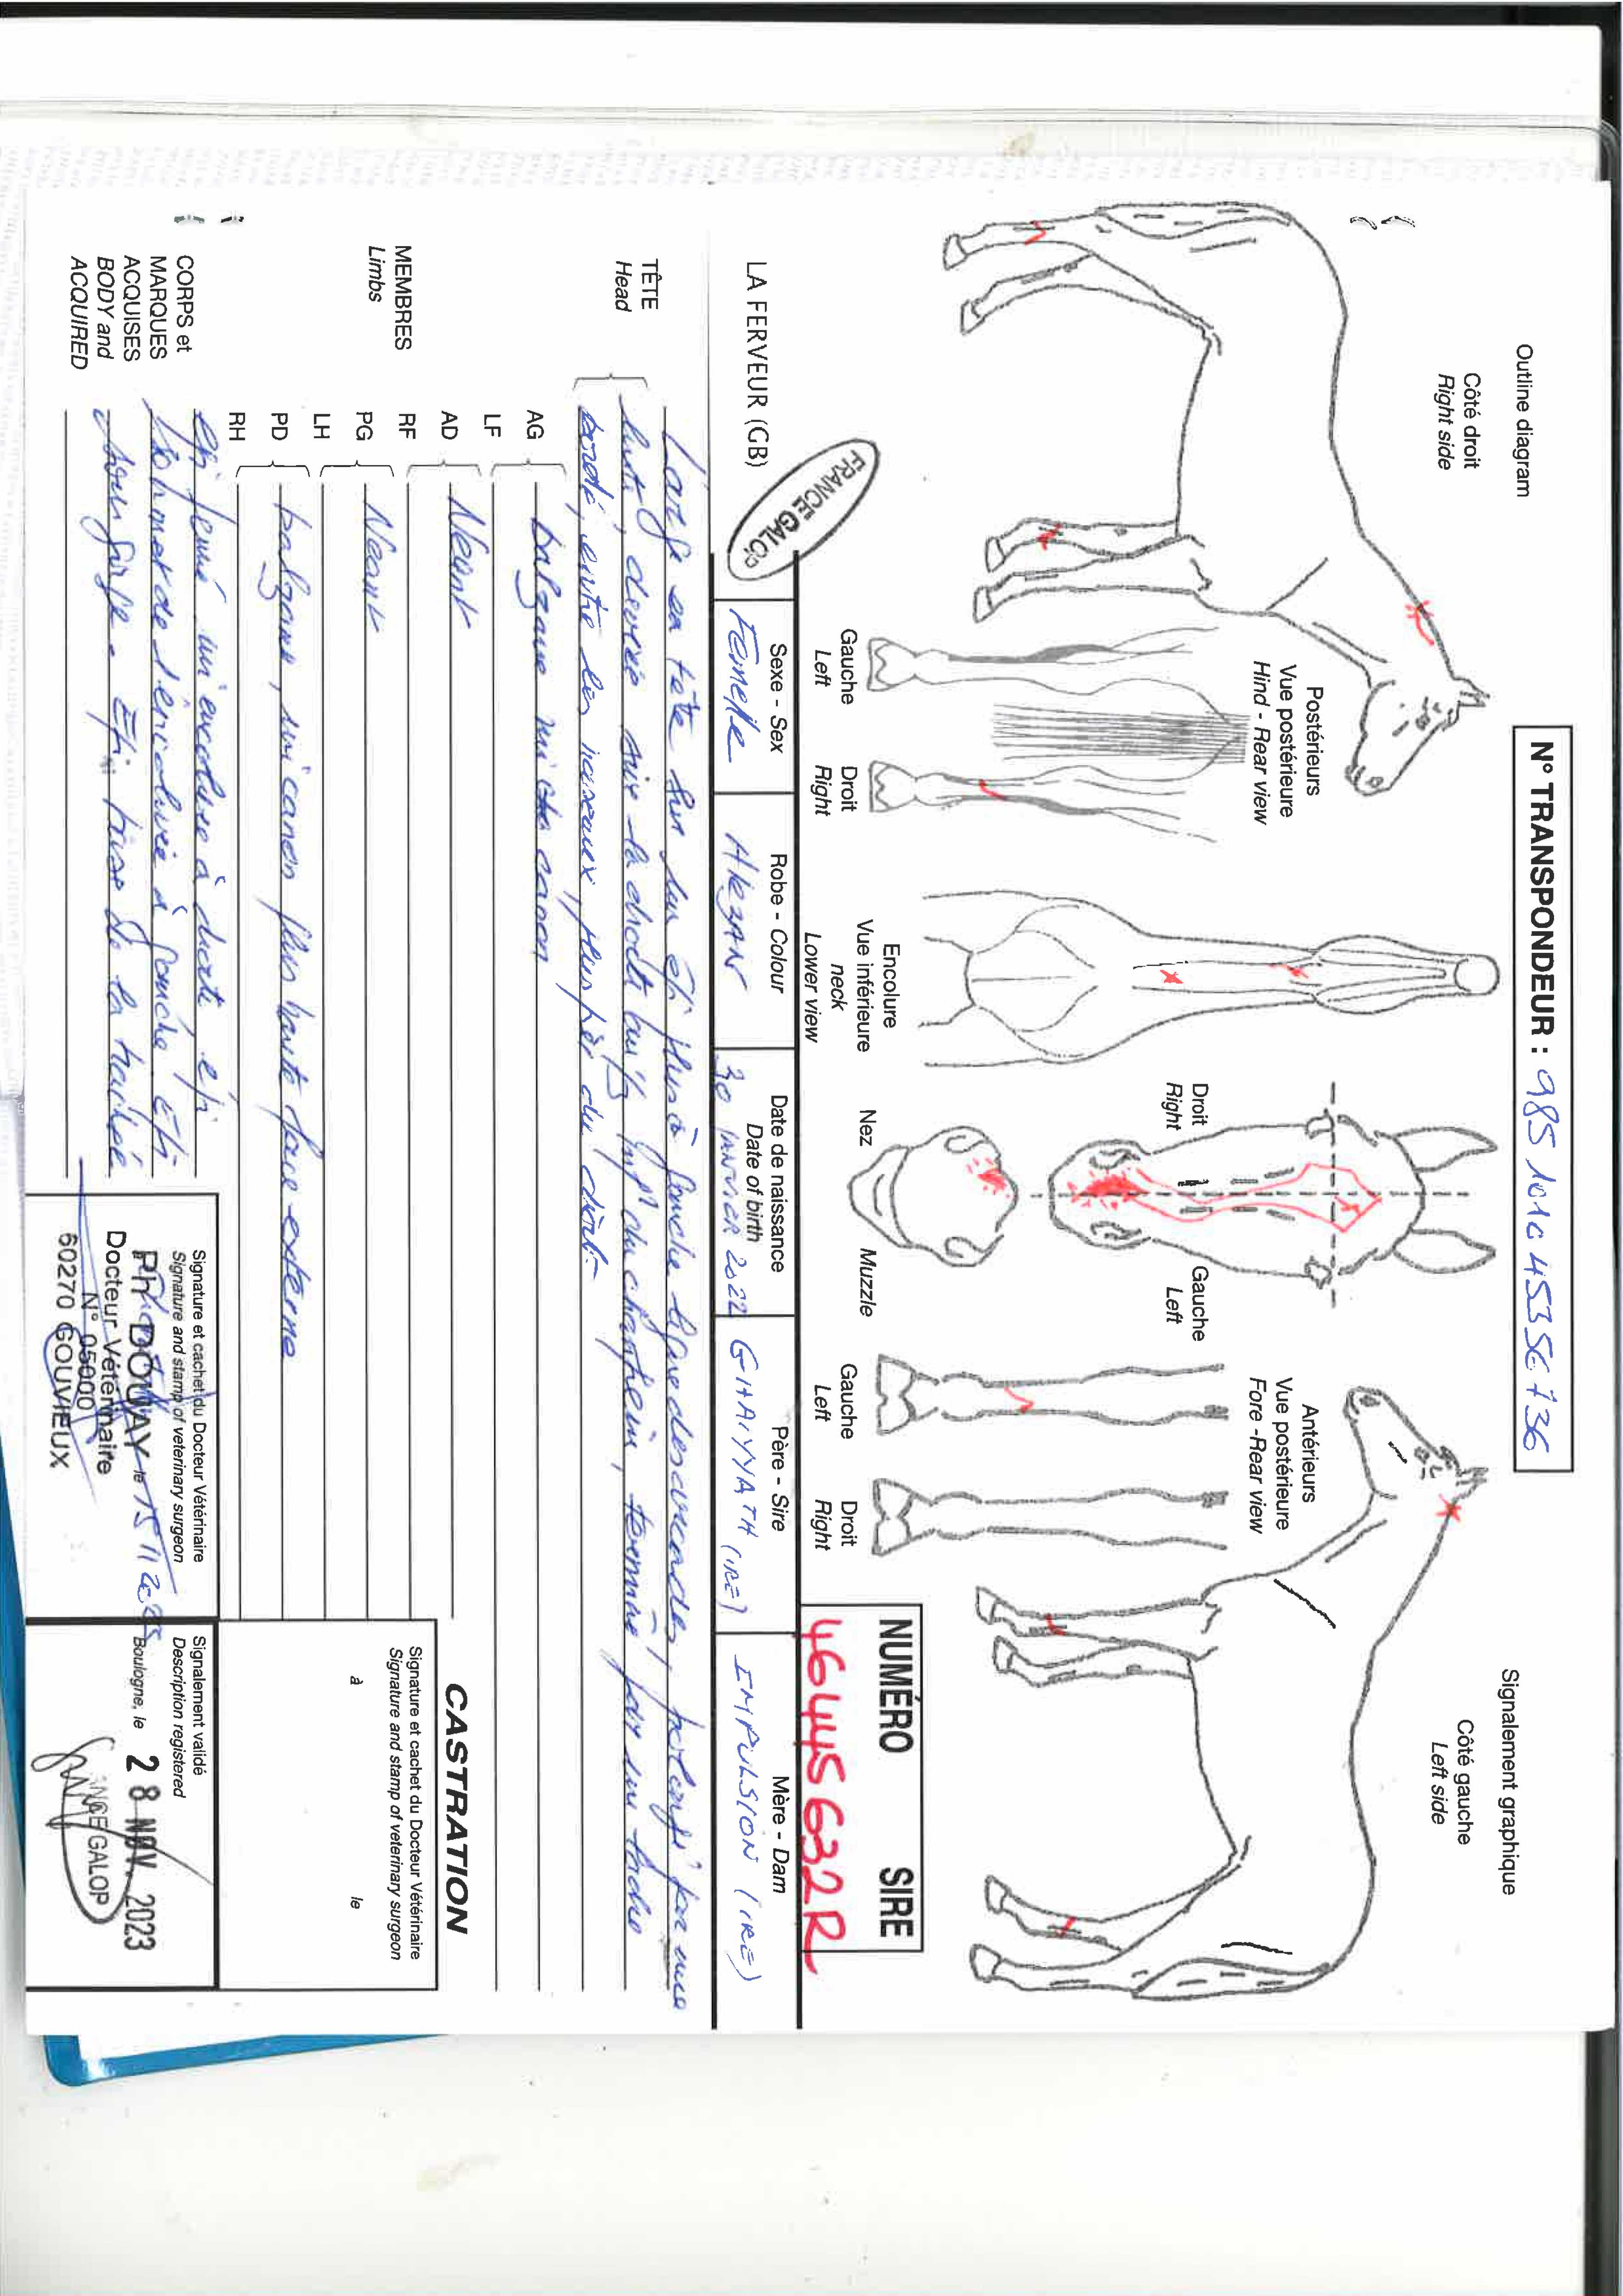 N° TRANSPONDEUR : 985 101045356736
Outline diagram
Signalement graphique
Côté droit
Right side
Côté gauche
Left side
Postérieurs
Vue postérieure
Hind - Rear view
Gauche
Left
Droit
Right
Encolure
Vue inférieure
neck
Lower view
Droit
Right
Gauche
Left
Nez
Muzzle
Antérieurs
Vue postérieure
Fore - Rear view
Gauche
Left
Droit
Right
NUMÉRO SIRE
46445632R
FRANCE GALOP
LA FERVEUR (GB)
Sexe - Sex
Femelle
Robe - Colour
Alezan
Date de naissance
Date of birth
30 JANVIER 2022
Père - Sire
GHAIYYATH (IRE)
Mère - Dam
IMPULSION (IRE)
TÊTE
Head
Large en tête bordée à gauche prolongé par une
liste, déviée à droite au 1/3 du chanfrein, terminée par un ladre
bordé, entre les naseaux, plus près du droit.
MEMBRES
Limbs
AG
LF
balzane mi canon
AD
RF
Néant
PG
LH
Néant
PD
RH
balzane, mi canon plus haute face externe
CORPS et
MARQUES
ACQUISES
BODY and
ACQUIRED
épi mi encolure à droite épi
sommet de l'encolure à gauche épi
sous gorge - Epi base de la trachée
CASTRATION
Signature et cachet du Docteur Vétérinaire
Signature and stamp of veterinary surgeon
à le
Signature et cachet du Docteur Vétérinaire
Signature and stamp of veterinary surgeon
Ph DOUAY le 15 11 2023
Docteur Vétérinaire
N° 05000
60270 GOUVIEUX
Signalement validé
Description registered
Boulogne, le 28 NOV. 2023
FRANCE GALOP